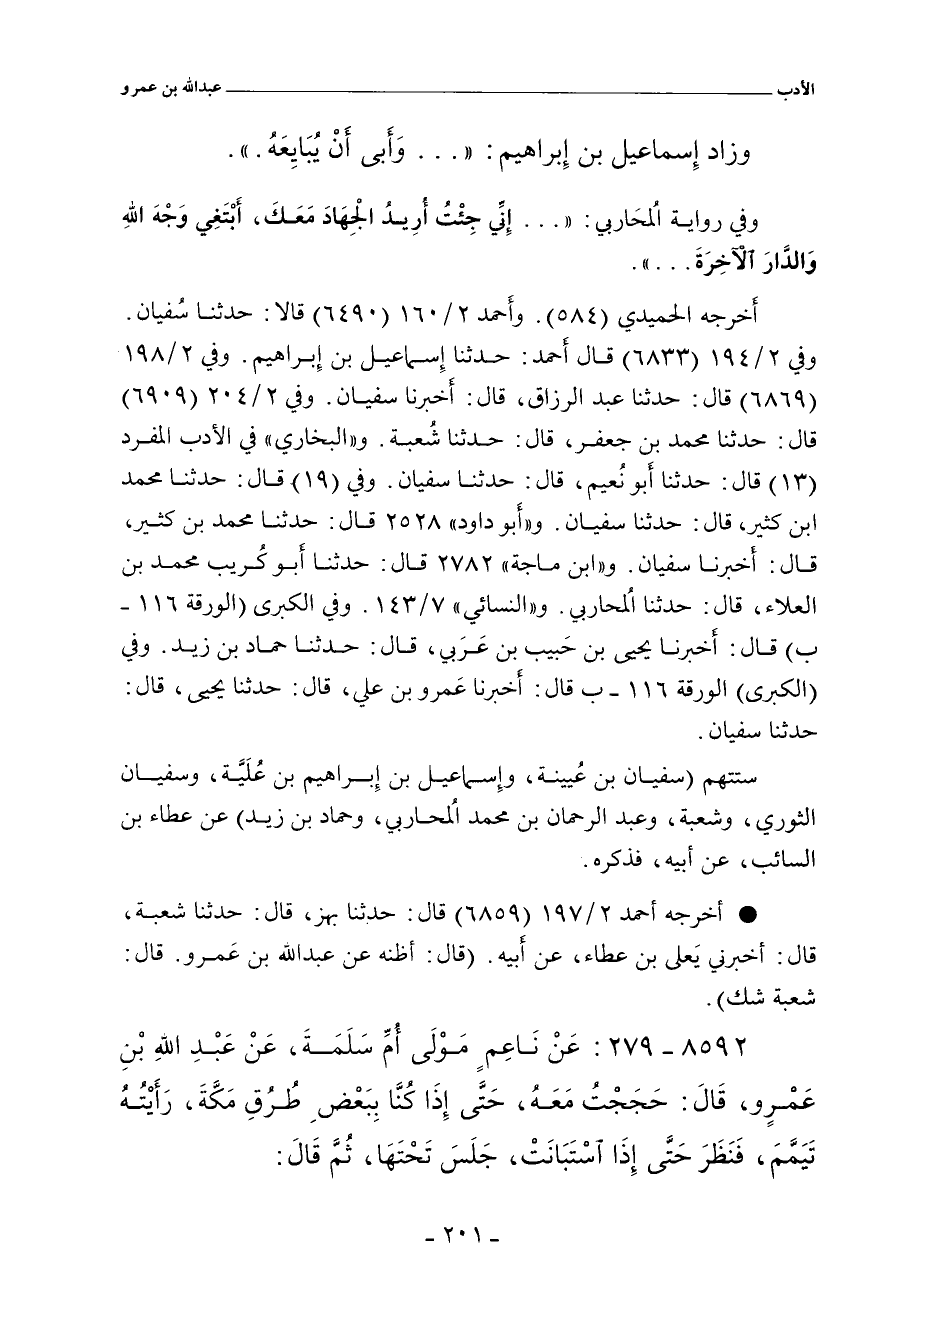 الأدب ــــــــــــــــــــ عبدالله بن عمرو
وزاد إسماعيل بن إبراهيم : « . . . وَأَبى أَنْ يُبَايِعَهُ . » .
وفي رواية اُلمحَاربي : « . . . إِنِّي جِئْتُ أُرِيدُ الْجِهَادَ مَعَكَ، أَبْتَغِي وَجْهَ اللهِ
وَالدَّارَ اْلآخِرَةَ . . . » .
أَخرجه الحميدي (٥٨٤) . وأَحمد ١٦٠/٢ (٦٤٩٠) قالا : حدثنا سُفيان .
وفي ١٩٤/٢ (٦٨٣٣) قال أَحمد : حدثنا إسماعيل بن إبراهيم . وفي ١٩٨/٢
(٦٨٦٩) قال : حدثنا عبد الرزاق، قال : أَخبرنا سفيان . وفي ٢٠٤/٢ (٦٩٠٩)
قال : حدثنا محمد بن جعفر، قال : حدثنا شُعبة . و«البخاري» في الأدب المفرد
(١٣) قال : حدثنا أَبو نُعيم، قال : حدثنا سفيان . وفي (١٩) قال : حدثنا محمد
ابن كثير، قال : حدثنا سفيان . و«أَبو داود» ٢٥٢٨ قال : حدثنا محمد بن كثير،
قال : أَخبرنا سفيان . و«ابن ماجة» ٢٧٨٢ قال : حدثنا أَبو كُريب محمد بن
العلاء، قال : حدثنا اُلمحاربي . و«النسائي» ١٤٣/٧ . وفي الكبرى (الورقة ١١٦ -
ب) قال : أَخبرنا يحيى بن حَبيب بن عَرَبي، قال : حدثنا حماد بن زيد . وفي
(الكبرى) الورقة ١١٦ - ب قال : أَخبرنا عَمرو بن علي، قال : حدثنا يحيى، قال :
حدثنا سفيان .
ستتهم (سفيان بن عُيينة، وإسماعيل بن إبراهيم بن عُلَيَّة، وسفيان
الثوري، وشعبة، وعبد الرحمان بن محمد اُلمحاربي، وحماد بن زيد) عن عطاء بن
السائب، عن أَبيه، فذكره .
● أَخرجه أحمد ١٩٧/٢ (٦٨٥٩) قال : حدثنا بهز، قال : حدثنا شعبة،
قال : أَخبرني يَعلى بن عطاء، عن أَبيه . (قال : أظنه عن عبدالله بن عَمرو . قال :
شعبة شك) .
٨٥٩٢ - ٢٧٩ : عَنْ نَاعِمٍ مَوْلَى أُمِّ سَلَمَةَ، عَنْ عَبْدِ اللهِ بْنِ
عَمْرٍو، قَالَ : حَجَجْتُ مَعَهُ، حَتَّى إِذَا كُنَّا بِبَعْضِ طُرُقِ مَكَّةَ، رَأَيْتُهُ
تَيَمَّمَ، فَنَظَرَ حَتَّى إِذَا اْسْتَبَانَتْ، جَلَسَ تَحْتَهَا، ثُمَّ قَالَ :
- ٢٠١ -